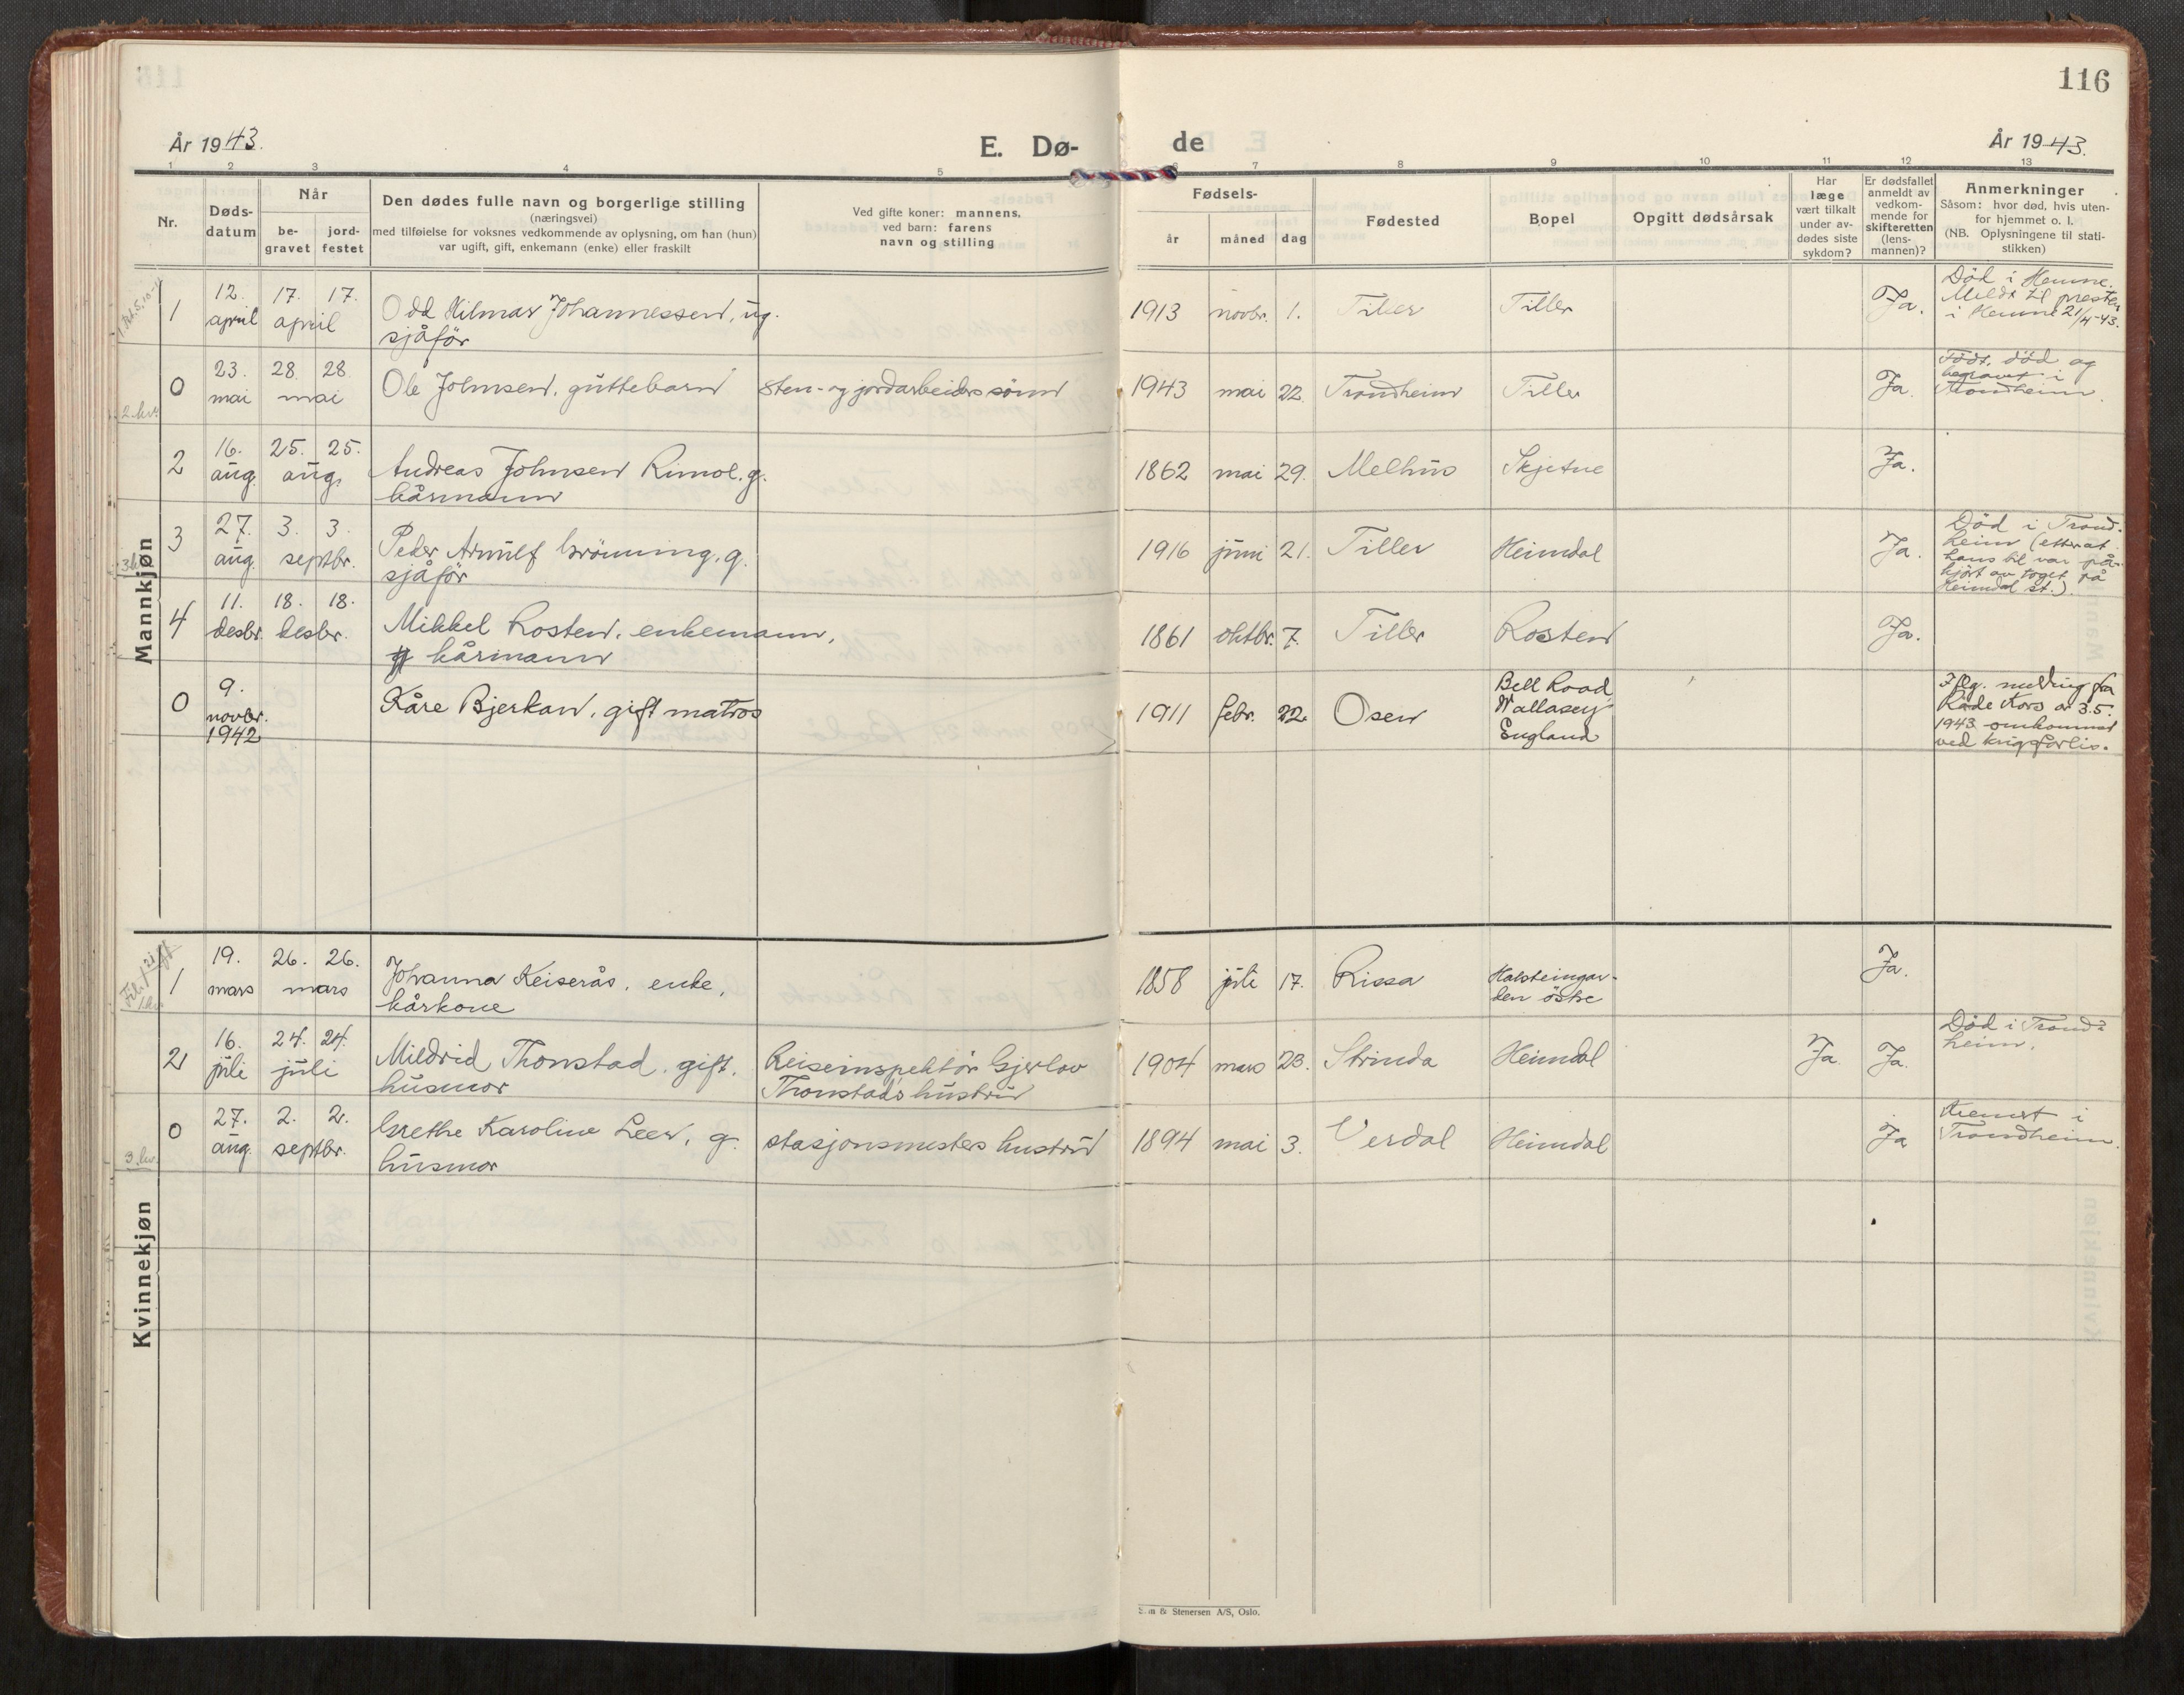 116
År 1943.
E. Dø-
de
År 1943.
1 2 3 4 5 6 7 8 9 10 11 12 13
Nr.
Døds-
datum
Når
be-
gravet
jord-
festet
Den dødes fulle navn og borgerlige stilling
(næringsvei)
med tilføielse for voksnes vedkommende av oplysning, om han (hun)
var ugift, gift, enkemann (enke) eller fraskilt
Ved gifte koner: mannens,
ved barn: farens
navn og stilling
Fødsels-
år
måned
dag
Fødested
Bopel
Opgitt dødsårsak
Har
læge
vært tilkalt
under av-
dødes siste
sykdom?
Er dødsfallet
anmeldt av
vedkom-
mende for
skifteretten
(lens-
mannen)?
Anmerkninger
Såsom: hvor død, hvis uten-
for hjemmet o. l.
(NB. Oplysningene til stati-
stikken)
Mannkjøn
1
12. april
17. 17. april
Odd Hilmar Johannessen, ug.
sjåfør
1913 novbr. 1. Tiller Tiller
Ja.
Död i Hemne.
Meldt til presten
i Hemne 21/4-43.
2. kv.
0
23. mai
28. 28. mai
Ole Johnsen, guttebarn
Sten- og jordarbeiders sönn
1943 mai 22. Trondheim Tiller
Ja.
Födt, död og
begravet i
Trondheim.
2
16. aug.
25. 25. aug.
Andreas Johnsen Rimol. g.
kårmann
1862 mai 29. Melhus Skjetne
Ja.
3
27. aug.
3. 3. septbr.
Peder Arnulf Grönning, g.
sjåför
1916 juni 21. Tiller Heimdal
Ja.
Död i Trond-
heim (etter at
hans bil var på-
kjört av toget på
Heimdal st.)
4
11. desbr.
18. 18. desbr.
Mikkel Rosten, enkemann,
kårmann
1861 oktbr. 7. Tiller Rosten
Ja.
0
9.
novbr.
1942
Kåre Bjerkan, gift matros
1911 febr. 22. Osen
Bell Road
Wallasey
England
Iflg. melding fra
Röde Kors av 3.5.
1943 omkommet
ved krigsforlis.
Kvinnekjøn
1
19. mars
26. 26. mars
Johanna Keiserås, enke,
kårkone
1858 juli 17. Rissa
Halsteingar-
den östre
Ja.
2
16. juli
24. 24. juli
Mildrid Thonstad, gift,
husmor
Reiseinspektör Gjerlov
Thonstads hustru
1904 mars 23. Strinda Heimdal
Ja. Ja.
Död i Trond-
heim.
3. kv.
0
27. aug.
2. 2. septbr.
Grethe Karoline Leer, g.
husmor
stasjonsmesters hustru
1894 mai 3. Verdal Heimdal
Ja
Kremert i
Trondheim.
& Stenersen A/S, Oslo.